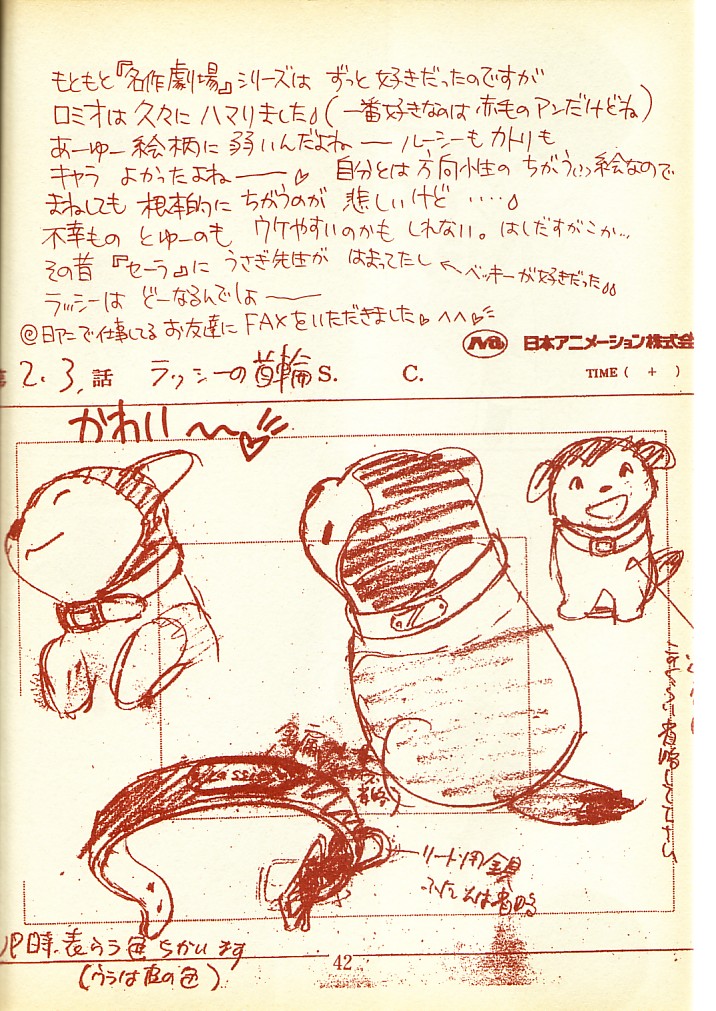 もともと『名作劇場』シリーズは ずっと好きだったのですが
ロミオは久々に ハマりました。(一番好きなのは赤毛のアンだけどね)
あーゆー絵柄に弱いんだよね── ルーシーもカトリも
キャラ よかったよね──♡ 自分とは方向性の ちがう(い)絵なので
まねしても 根本的に ちがうのが 悲しいけど ‥‥。
不幸もの とゆーのも ウケやすいのかも しれない。はしだすがこか…
その昔『セーラ』に うさぎ先生が はまってたし ←ベッキーが好きだった。。
ラッシーは どーなるんでしょ──
@日アニで仕事してる お友達に FAXをいただきました♡ ^^♡
日本アニメーション株式会
2.3. 話 ラッシーの首輪 S. C. TIME ( + )
かわい〜〜♡
金属
lassie
省略)
リード用金具
ふだんは省略
UP時、表うら色ちがいます
(ウラは皮の色)
42